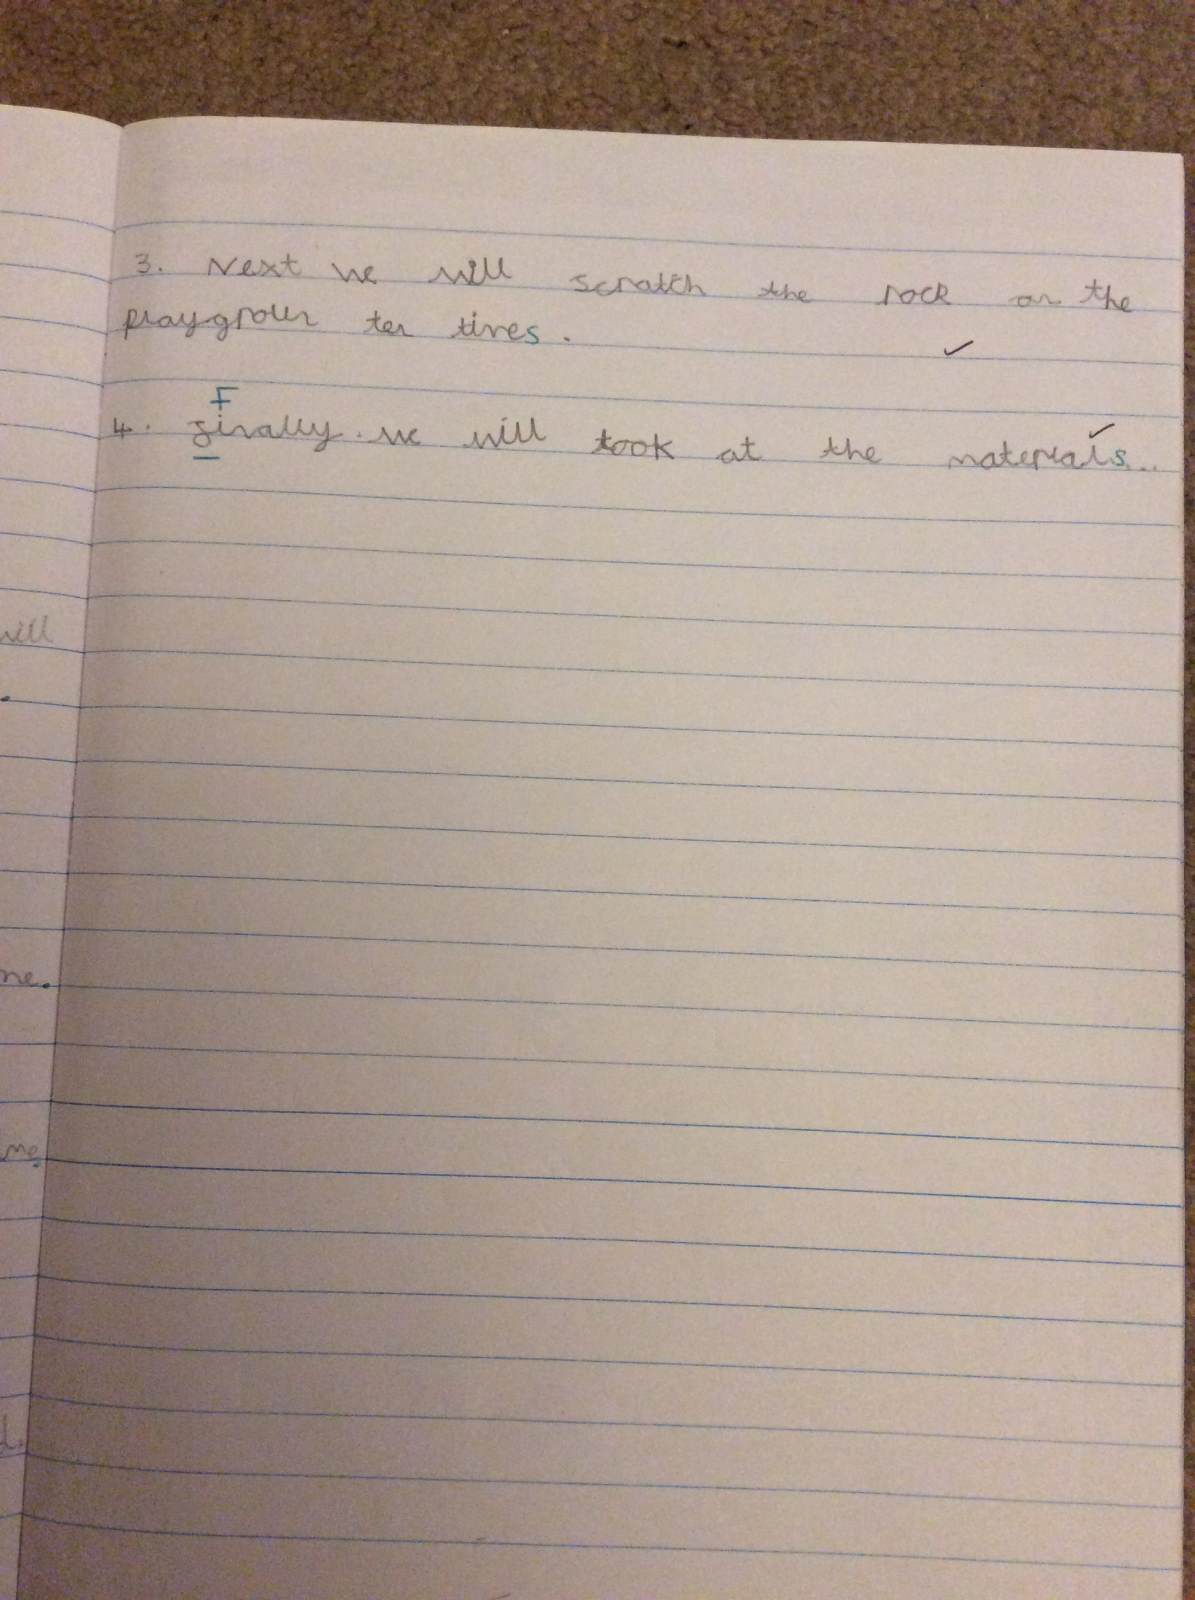 3. Next we will scratch the rock on the
playgroun ten times.
F
4. finally we will look at the materials.
will
me.
me.
d.